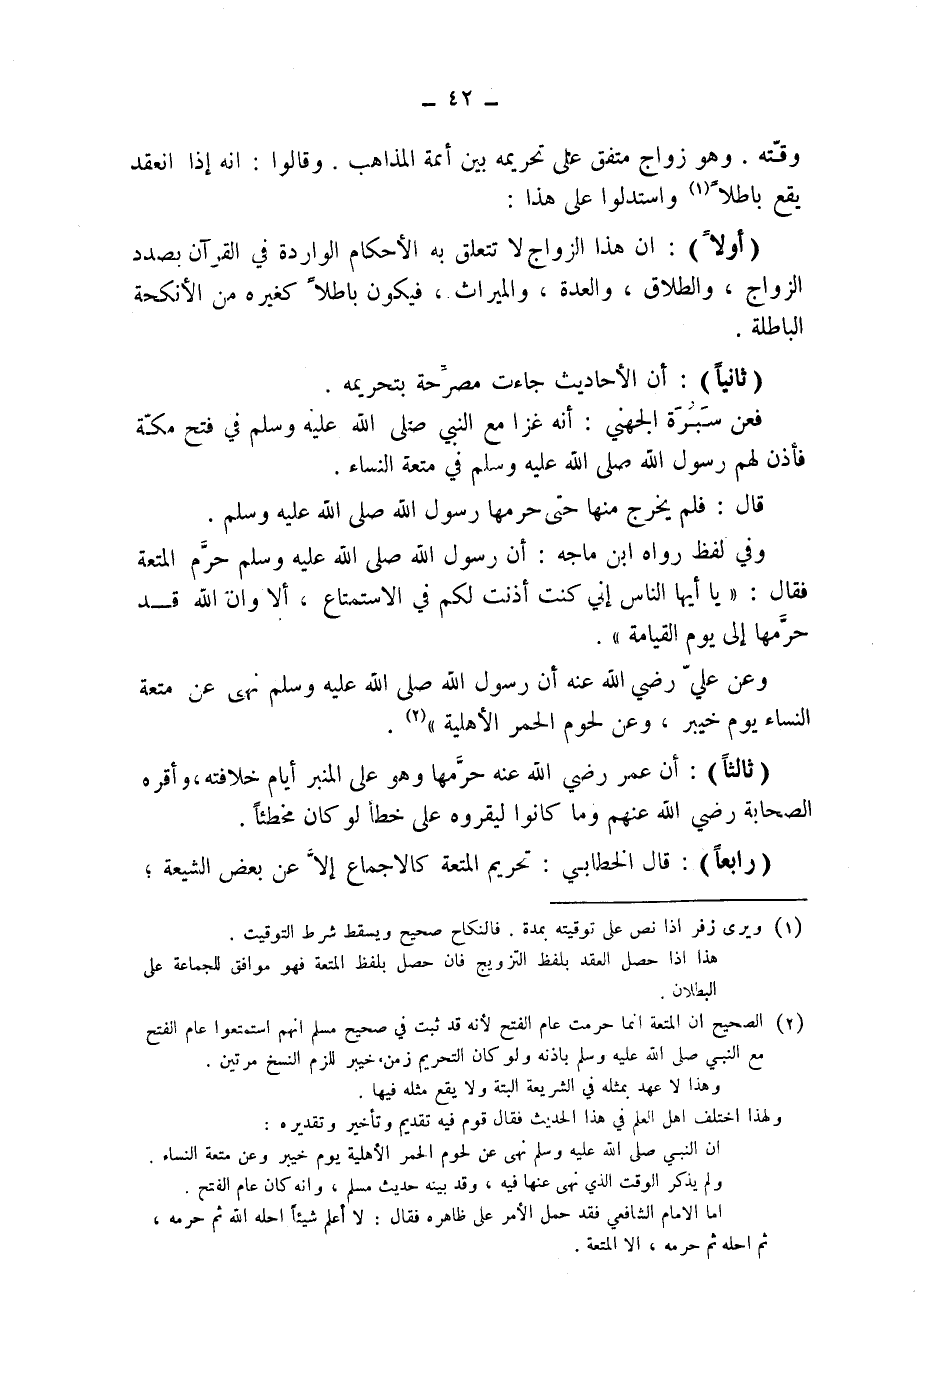 ـ ٤٢ ـ
وقته . وهو زواج متفق على تحريمه بين أئمة المذاهب . وقالوا : انه إذا انعقد
يقع باطلاً(١) واستدلوا على هذا :
( أولاً ) : ان هذا الزواج لا تتعلق به الأحكام الواردة في القرآن بصدد
الزواج ، والطلاق ، والعدة ، والميراث ، فيكون باطلاً كغيره من الأنكحة
الباطلة .
( ثانياً ) : أن الأحاديث جاءت مصرِّحة بتحريمه .
فعن سَبُرَة الجهني : أنه غزا مع النبي صلى الله عليه وسلم في فتح مكّة
فأذن لهم رسول الله صلى الله عليه وسلم في متعة النساء .
قال : فلم يخرج منها حتى حرمها رسول الله صلى الله عليه وسلم .
وفي لفظ رواه ابن ماجه : أن رسول الله صلى الله عليه وسلم حرَّم المتعة
فقال : « يا أيها الناس إني كنت أذنت لكم في الاستمتاع ، ألا وان الله قـــد
حرَّمها إلى يوم القيامة » .
وعن عليّ رضي الله عنه أن رسول الله صلى الله عليه وسلم نهى عن متعة
النساء يوم خيبر ، وعن لحوم الحمر الأهلية »(٢) .
( ثالثاً ) : أن عمر رضي الله عنه حرَّمها وهو على المنبر أيام خلافته ، وأقره
الصحابة رضي الله عنهم وما كانوا ليقروه على خطأ لو كان مخطئاً .
( رابعاً ) : قال الخطابي : تحريم المتعة كالاجماع إلاَّ عن بعض الشيعة ؛
(١) ويرى زفر اذا نص على توقيته بمدة . فالنكاح صحيح ويسقط شرط التوقيت .
هذا اذا حصل العقد بلفظ التزويج فان حصل بلفظ المتعة فهو موافق للجماعة على
البطلان .
(٢) الصحيح ان المتعة انما حرمت عام الفتح لأنه قد ثبت في صحيح مسلم انهم استمتعوا عام الفتح
مع النبي صلى الله عليه وسلم باذنه ولو كان التحريم زمن خيبر للزم النسخ مرتين .
وهذا لا عهد بمثله في الشريعة البتة ولا يقع مثله فيها .
ولهذا اختلف اهل العلم في هذا الحديث فقال قوم فيه تقديم وتأخير وتقديره :
ان النبي صلى الله عليه وسلم نهى عن لحوم الحمر الأهلية يوم خيبر وعن متعة النساء .
ولم يذكر الوقت الذي نهى عنها فيه ، وقد بينه حديث مسلم ، وانه كان عام الفتح .
اما الامام الشافعي فقد حمل الأمر على ظاهره فقال : لا أعلم شيئاً احله الله ثم حرمه ،
ثم احله ثم حرمه ، الا المتعة .